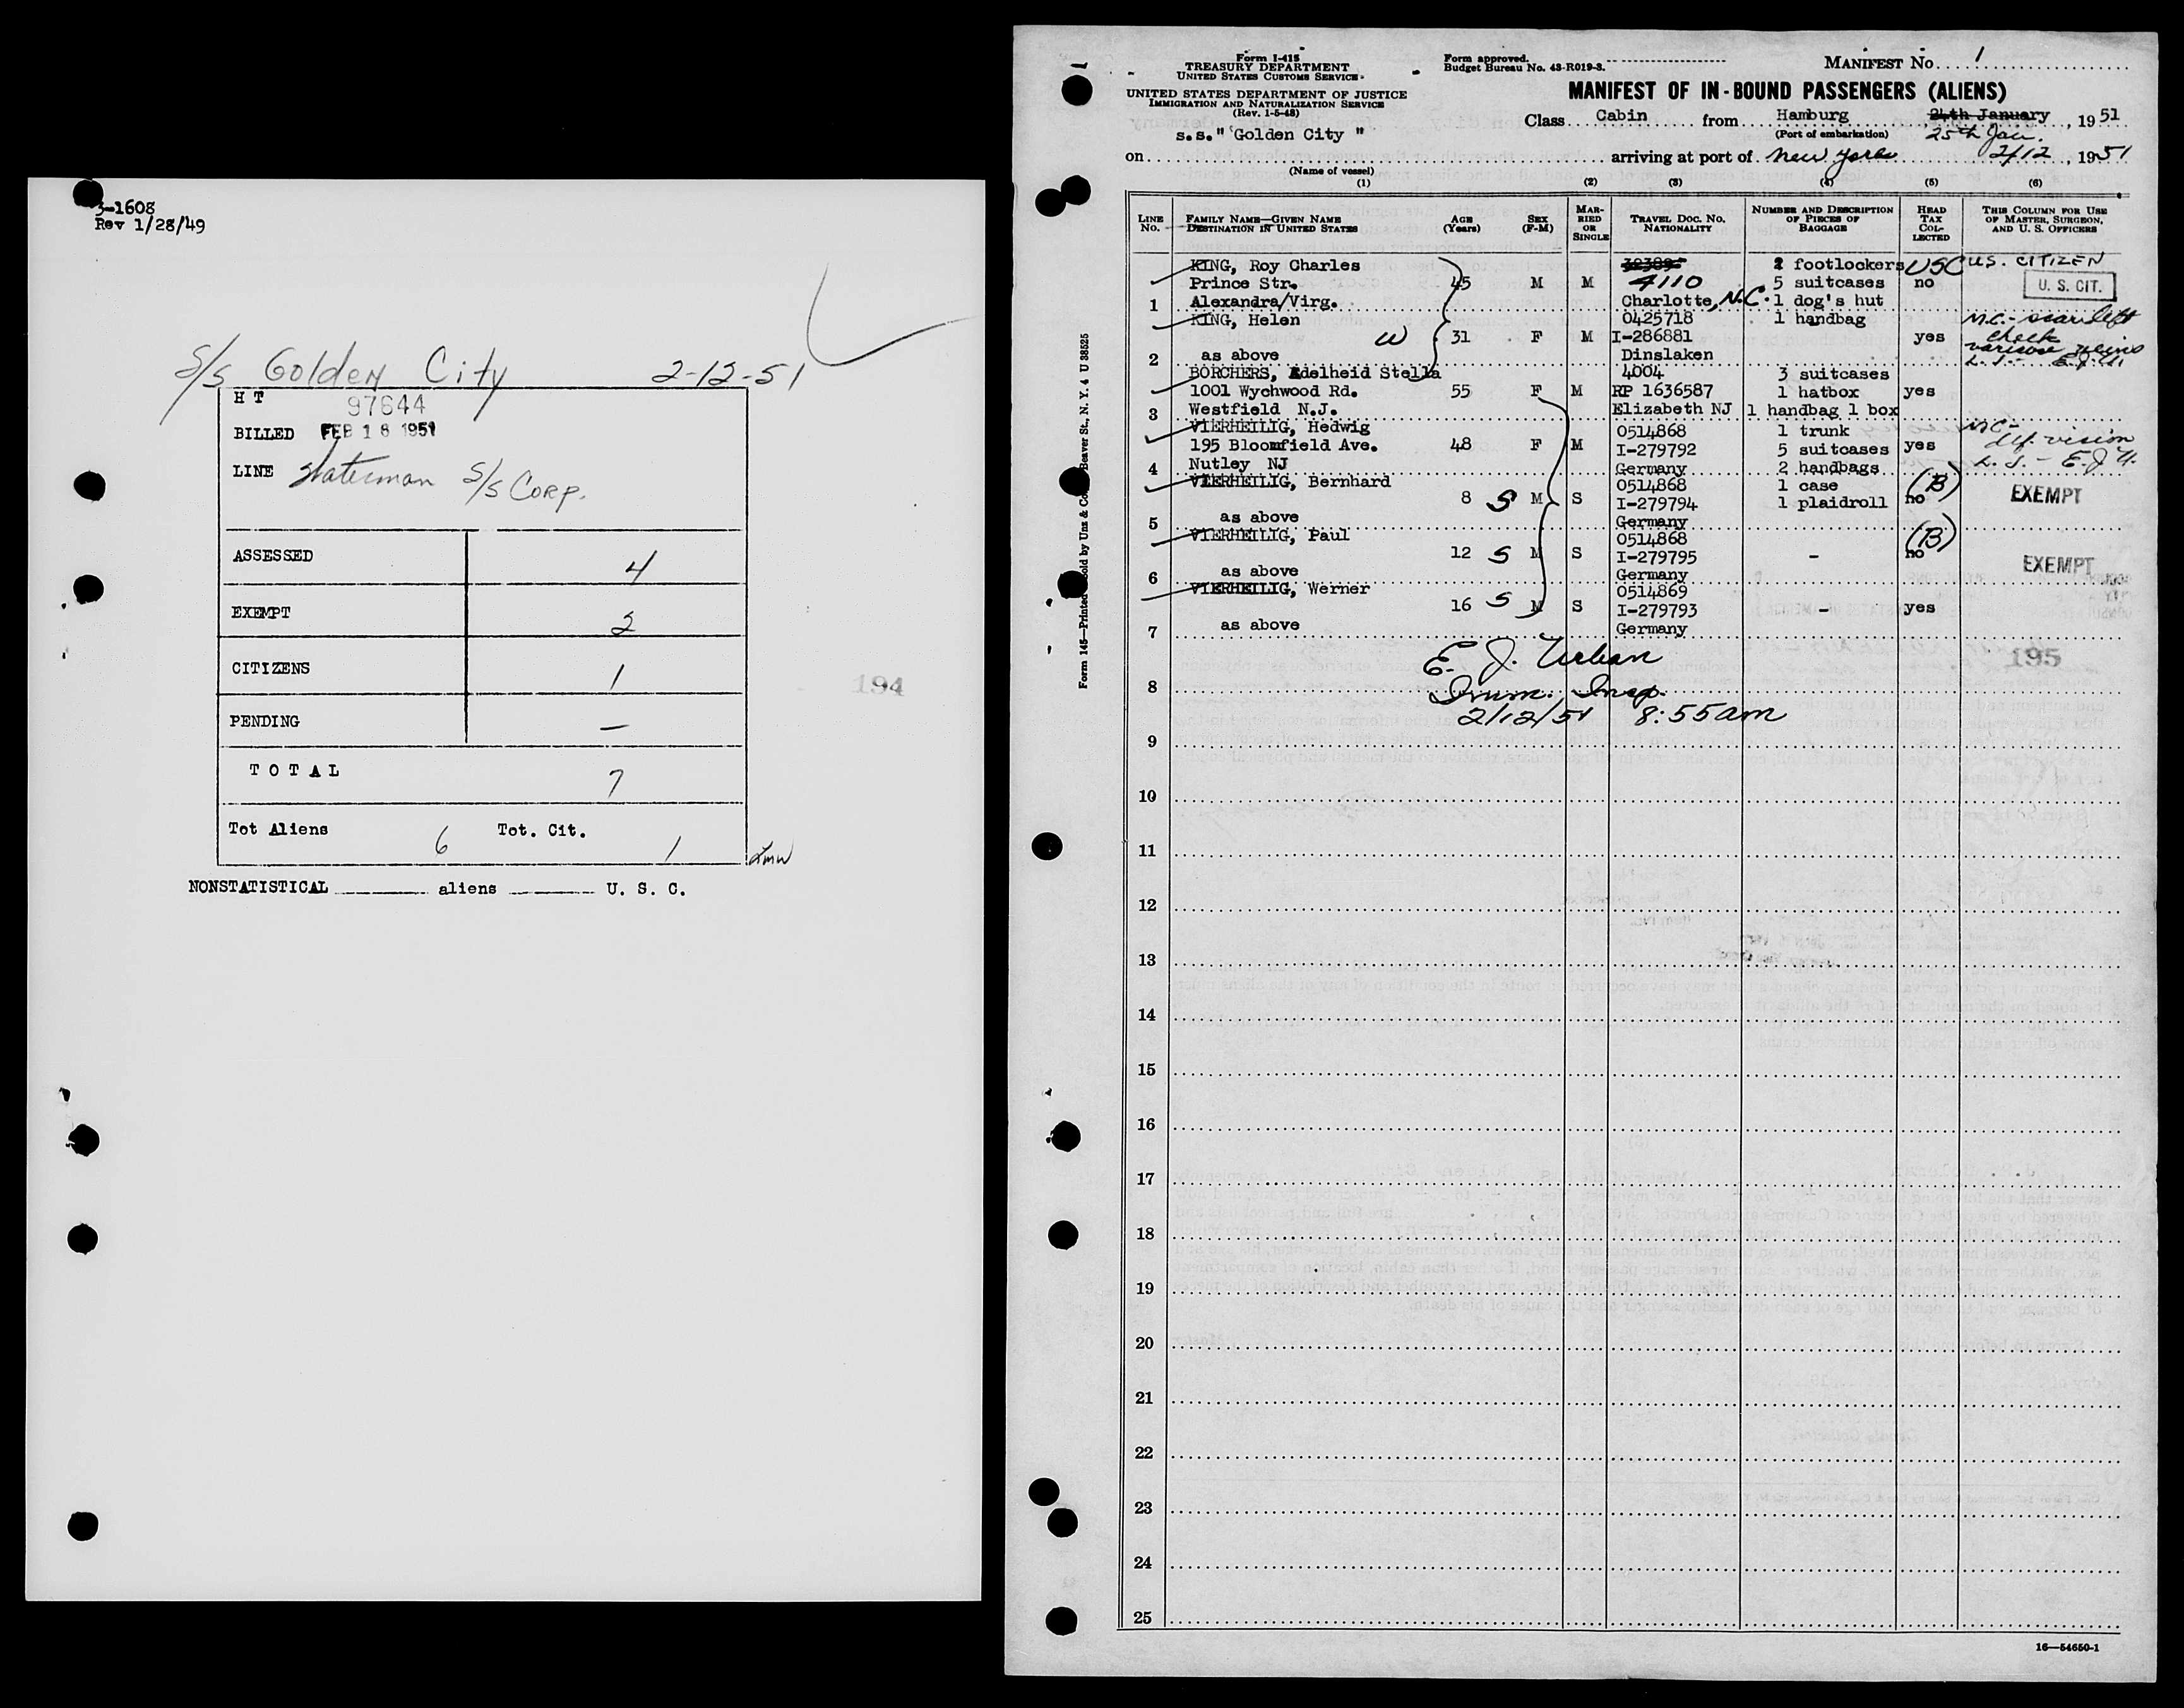 3-1608
Rev 1/28/49
S/S Golden City 2-12-51
H T 97644
BILLED FEB 16 1951
LINE Waterman S/S Corp.
ASSESSED 4
EXEMPT 2
CITIZENS 1
PENDING –
T O T A L 7
Tot Aliens 6 Tot. Cit. 1
NONSTATISTICAL aliens U. S. C.
194
Form I-415
TREASURY DEPARTMENT
UNITED STATES CUSTOMS SERVICE
UNITED STATES DEPARTMENT OF JUSTICE
IMMIGRATION AND NATURALIZATION SERVICE
(Rev. 1-5-48)
Form approved.
Budget Bureau No. 43-R019-3.
MANIFEST No. 1
MANIFEST OF IN-BOUND PASSENGERS (ALIENS)
Class Cabin from Hamburg 24th January, 1951
(Port of embarkation) 25th Jan.
s.s." Golden City "
on arriving at port of New York 2/12, 1951
(Name of vessel)
(1) (2) (3) (4) (5) (6)
LINE No. FAMILY NAME—GIVEN NAME DESTINATION IN UNITED STATES AGE (Years) SEX (F-M) MARRIED OR SINGLE TRAVEL DOC. NO. NATIONALITY NUMBER AND DESCRIPTION OF PIECES OF BAGGAGE HEAD TAX COLLECTED THIS COLUMN FOR USE OF MASTER, SURGEON, AND U. S. OFFICERS
KING, Roy Charles 2 footlockers USC U.S. CITIZEN
Prince Str. 45 M M 4110 5 suitcases no U. S. CIT.
1 Alexandra/Virg. Charlotte, N.C. 1 dog's hut
KING, Helen 0425718 1 handbag M.C. - scar left
W 31 F M I-286881 yes cheek
2 as above Dinslaken varicose veins
L. S. - E.J.U.
BORCHERS, Adelheid Stella 4004 3 suitcases
1001 Wychwood Rd. 55 F M RP 1636587 1 hatbox yes
3 Westfield N.J. Elizabeth NJ 1 handbag 1 box
VIERHEILIG, Hedwig 0514868 1 trunk M.C -
195 Bloomfield Ave. 48 F M I-279792 5 suitcases yes def. vision
4 Nutley NJ Germany 2 handbags L. S. - E.J.U.
VIERHEILIG, Bernhard 0514868 1 case (B)
8 S M S I-279794 1 plaidroll no EXEMPT
5 as above Germany
VIERHEILIG, Paul 0514868 (B)
12 S M S I-279795 - no EXEMPT
6 as above Germany
VIERHEILIG, Werner 0514869
16 S M S I-279793 - yes
7 as above Germany
195
E. J. Urban
8 Imm. Insp.
2/12/51 8:55am
9
10
11
12
13
14
15
16
17
18
19
20
21
22
23
24
25
16—54650-1